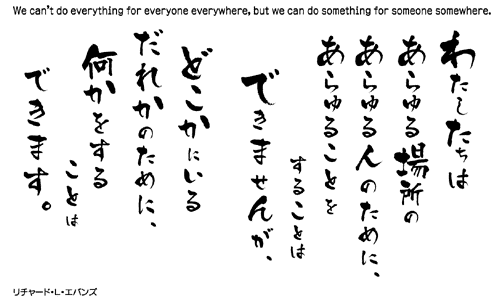 We can't do everything for everyone everywhere, but we can do something for someone somewhere.
わたしたちは
あらゆる場所の
あらゆる人のために、
あらゆることを
することは
できませんが、
どこかにいる
だれかのために、
何かをする
ことは
できます。
リチャード・L・エバンズ